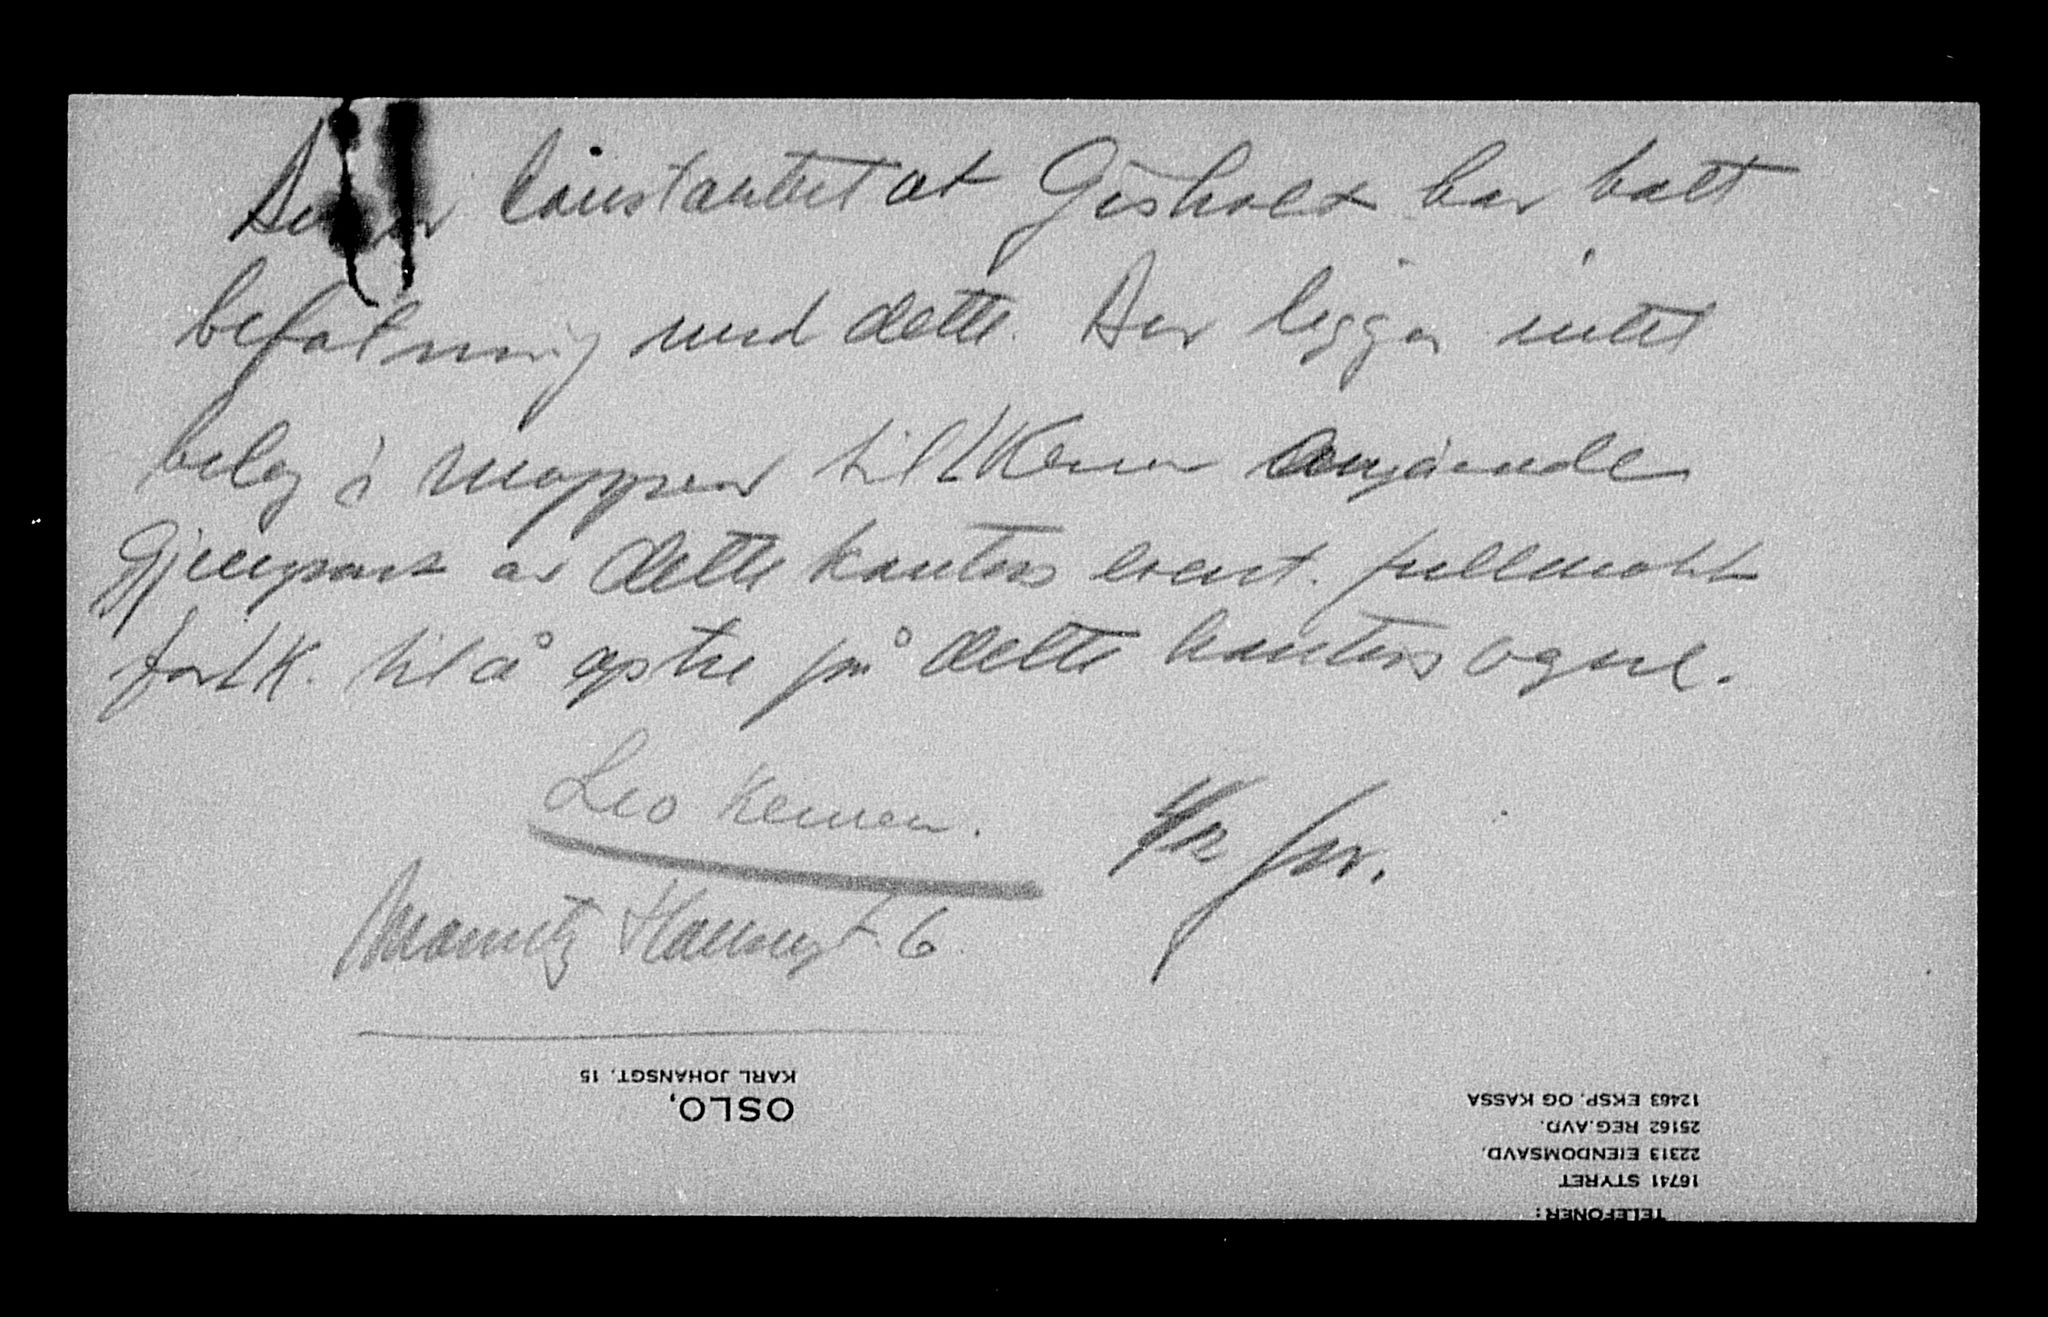 Der er konstantert at Gisholt har hatt
befatning med dette. Der ligger intet
belag i mappen til Kenen angående
gjenpart av dette kontors event. fullmakt
for K. til å optre på dette kontors vegne.
Leo Kenen.
4/12
Mauritz Hansensgt. 6.
OSLO,
KARL JOHANSGT. 15
TELEFONER:
16741 STYRET
22313 EIENDOMSAVD.
25162 REG.AVD.
12463 EKSP. OG KASSA